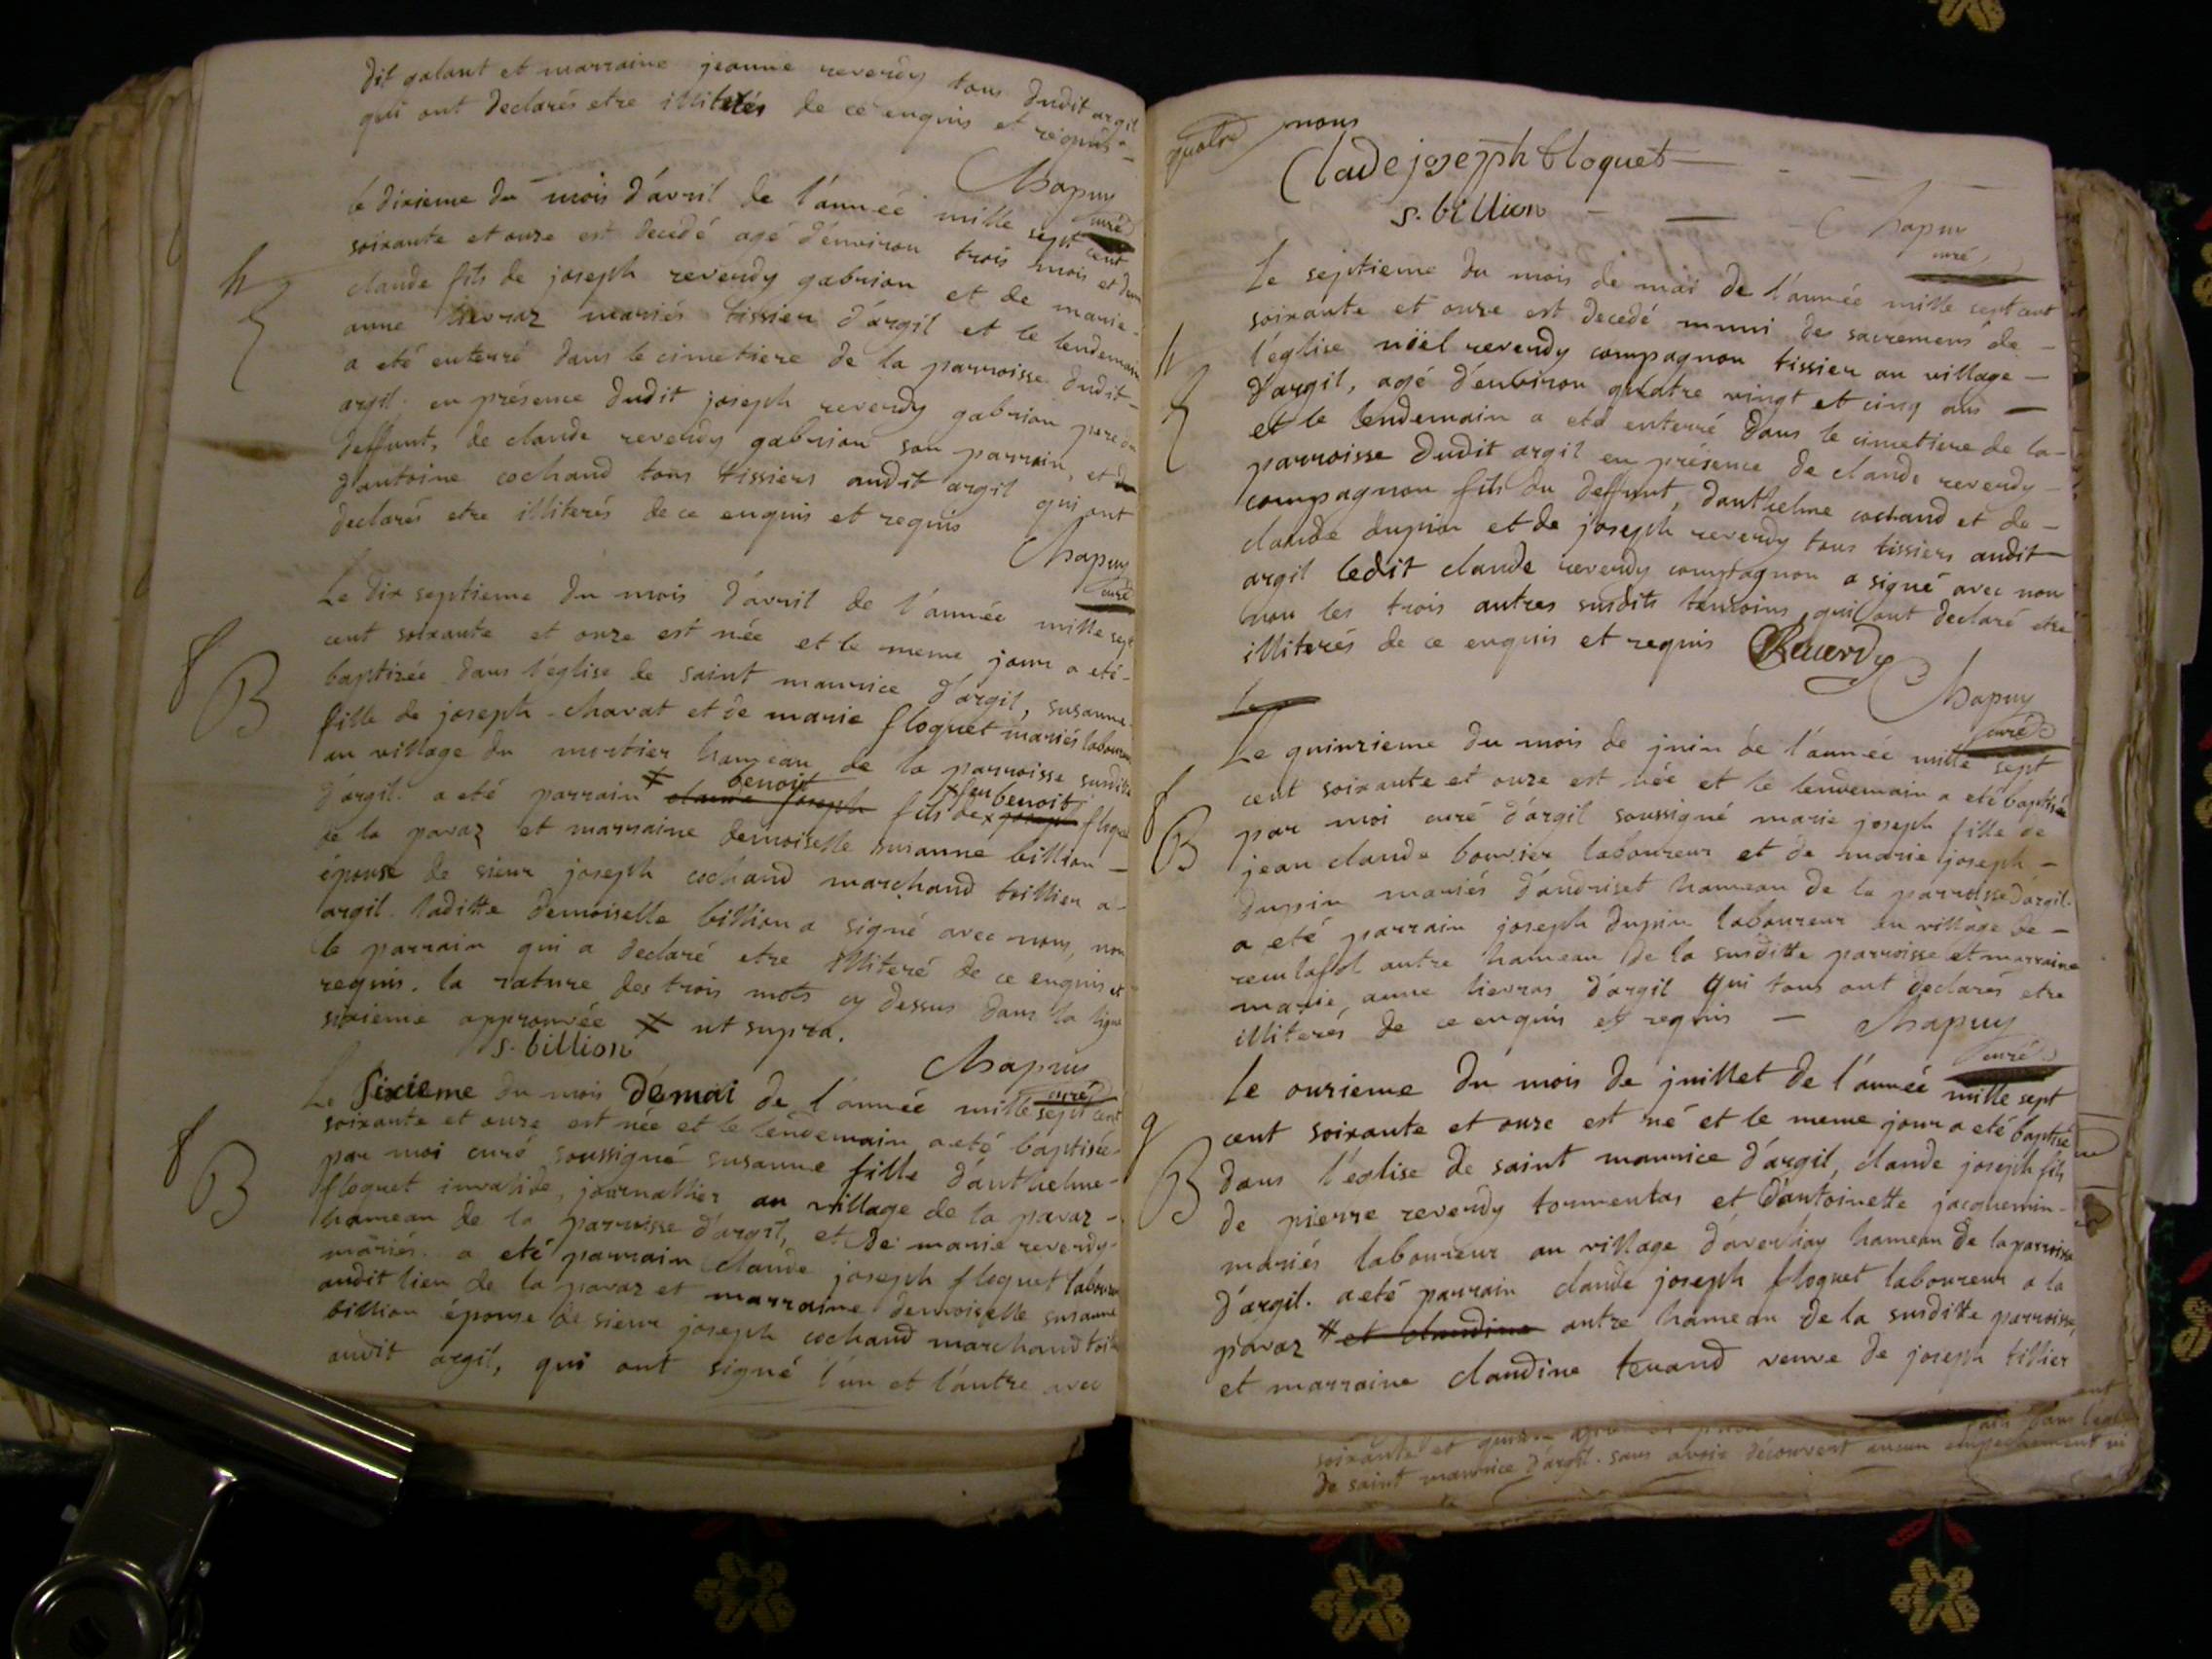 dit galant et marraine jeanne reverdy tous dudit argil
qui ont declarés etre illiterés de ce enquis et requis
Chapuy
curé
le dixieme du mois d'avril de l'année mille sept cent
soixante et onze est decedé agé d'environ trois mois et demi
h
claude fils de joseph reverdy gabrion et de marie
anne lievraz mariés tissier d'argil et le lendemain
a eté enterré dans le cimetiere de la parroisse dudit
argil. en présence dudit joseph reverdy gabrion pere du
deffunt, de claude reverdy gabrion son parrain, et
d'antoine cochand tous tissiers audit argil qui ont
declarés etre illiterés de ce enquis et requis
Chapuy
curé
Le dix septieme du mois d'avril de l'année mille sept
cent soixante et onze est née et le meme jour a eté
f
B
baptizée dans l'église de saint maurice d'argil, susanne
fille de joseph charat et de marie floquet mariés laboureur
au village du mortier hameau de la parroisse susditte
d'argil. a eté parrain benoit claude joseph fils de feu benoit joseph floquet
de la pavaz et marraine demoiselle susanne billion
épouse de sieur joseph cochand marchand toillier a
argil. laditte demoiselle billion a signé avec nous, non
le parrain qui a declaré etre illiteré de ce enquis et
requis. la rature des trois mots cy dessus dans la ligne
sixieme approuvée ut supra.
s. billion
Chapuy
curé
Le sixieme du mois de mai de l'année mille sept cent
soixante et onze est née et le lendemain a eté baptisée
f
B
par moi curé soussigné susanne fille d'anthelme
floquet invalide, journallier au village de la pavaz
hameau de la parroisse d'argil, et de marie reverdy
mariés. a eté parrain claude joseph floquet laboureur
audit lieu de la pavaz et marraine demoiselle susanne
billion épouse de sieur joseph cochand marchand
audit argil, qui ont signé l'un et l'autre avec
quatre
nous
Claude joseph floquet
s. billion
Chapuy
curé
Le septieme du mois de mai de l'année mille sept cent
soixante et onze est decedé muni des sacremens de
h
l'église noël reverdy compagnon tissier au village
d'argil, agé d'environ quatre vingt et cinq ans
et le lendemain a eté enterré dans le cimetiere de la
parroisse dudit argil en présence de claude reverdy
compagnon fils du deffunt, d'anthelme cochand et de
claude dupin et de joseph reverdy tous tissiers audit
argil ledit claude reverdy compagnon a signé avec nou
non les trois autres susdits temoins qui ont declaré etre
illiterés de ce enquis et requis C Reverdy
Chapuy
curé
Le
Le quinzieme du mois de juin de l'année mille sept
cent soixante et onze est née et le lendemain a eté baptisée
f
B
par moi curé d'argil soussigné marie joseph fille de
jean claude bouvier laboureur et de marie joseph
dupin mariés d'andriset hameau de la parroisse d'argil.
a eté parrain joseph dupin laboureur au village de
autre hameau de la susditte parroisse et marraine
marie anne lievras d'argil qui tous ont declarés etre
illiterés de ce enquis et requis
Chapuy
curé
le onzieme du mois de juillet de l'année mille sept
g
cent soixante et onze est né et le meme jour a eté baptisé
B
dans l'église de saint maurice d'argil, claude joseph fils
de pierre reverdy tormentas et d'antoinette jacquemin
mariés laboureur au village d'averliay hameau de la parroisse
d'argil. a eté parrain claude joseph floquet laboureur a la
pavaz et claudine autre hameau de la susditte parroisse,
et marraine claudine tenand veuve de joseph tillier
soixante et
de saint maurice d'argil. sans avoir découvert aucun empechement ni